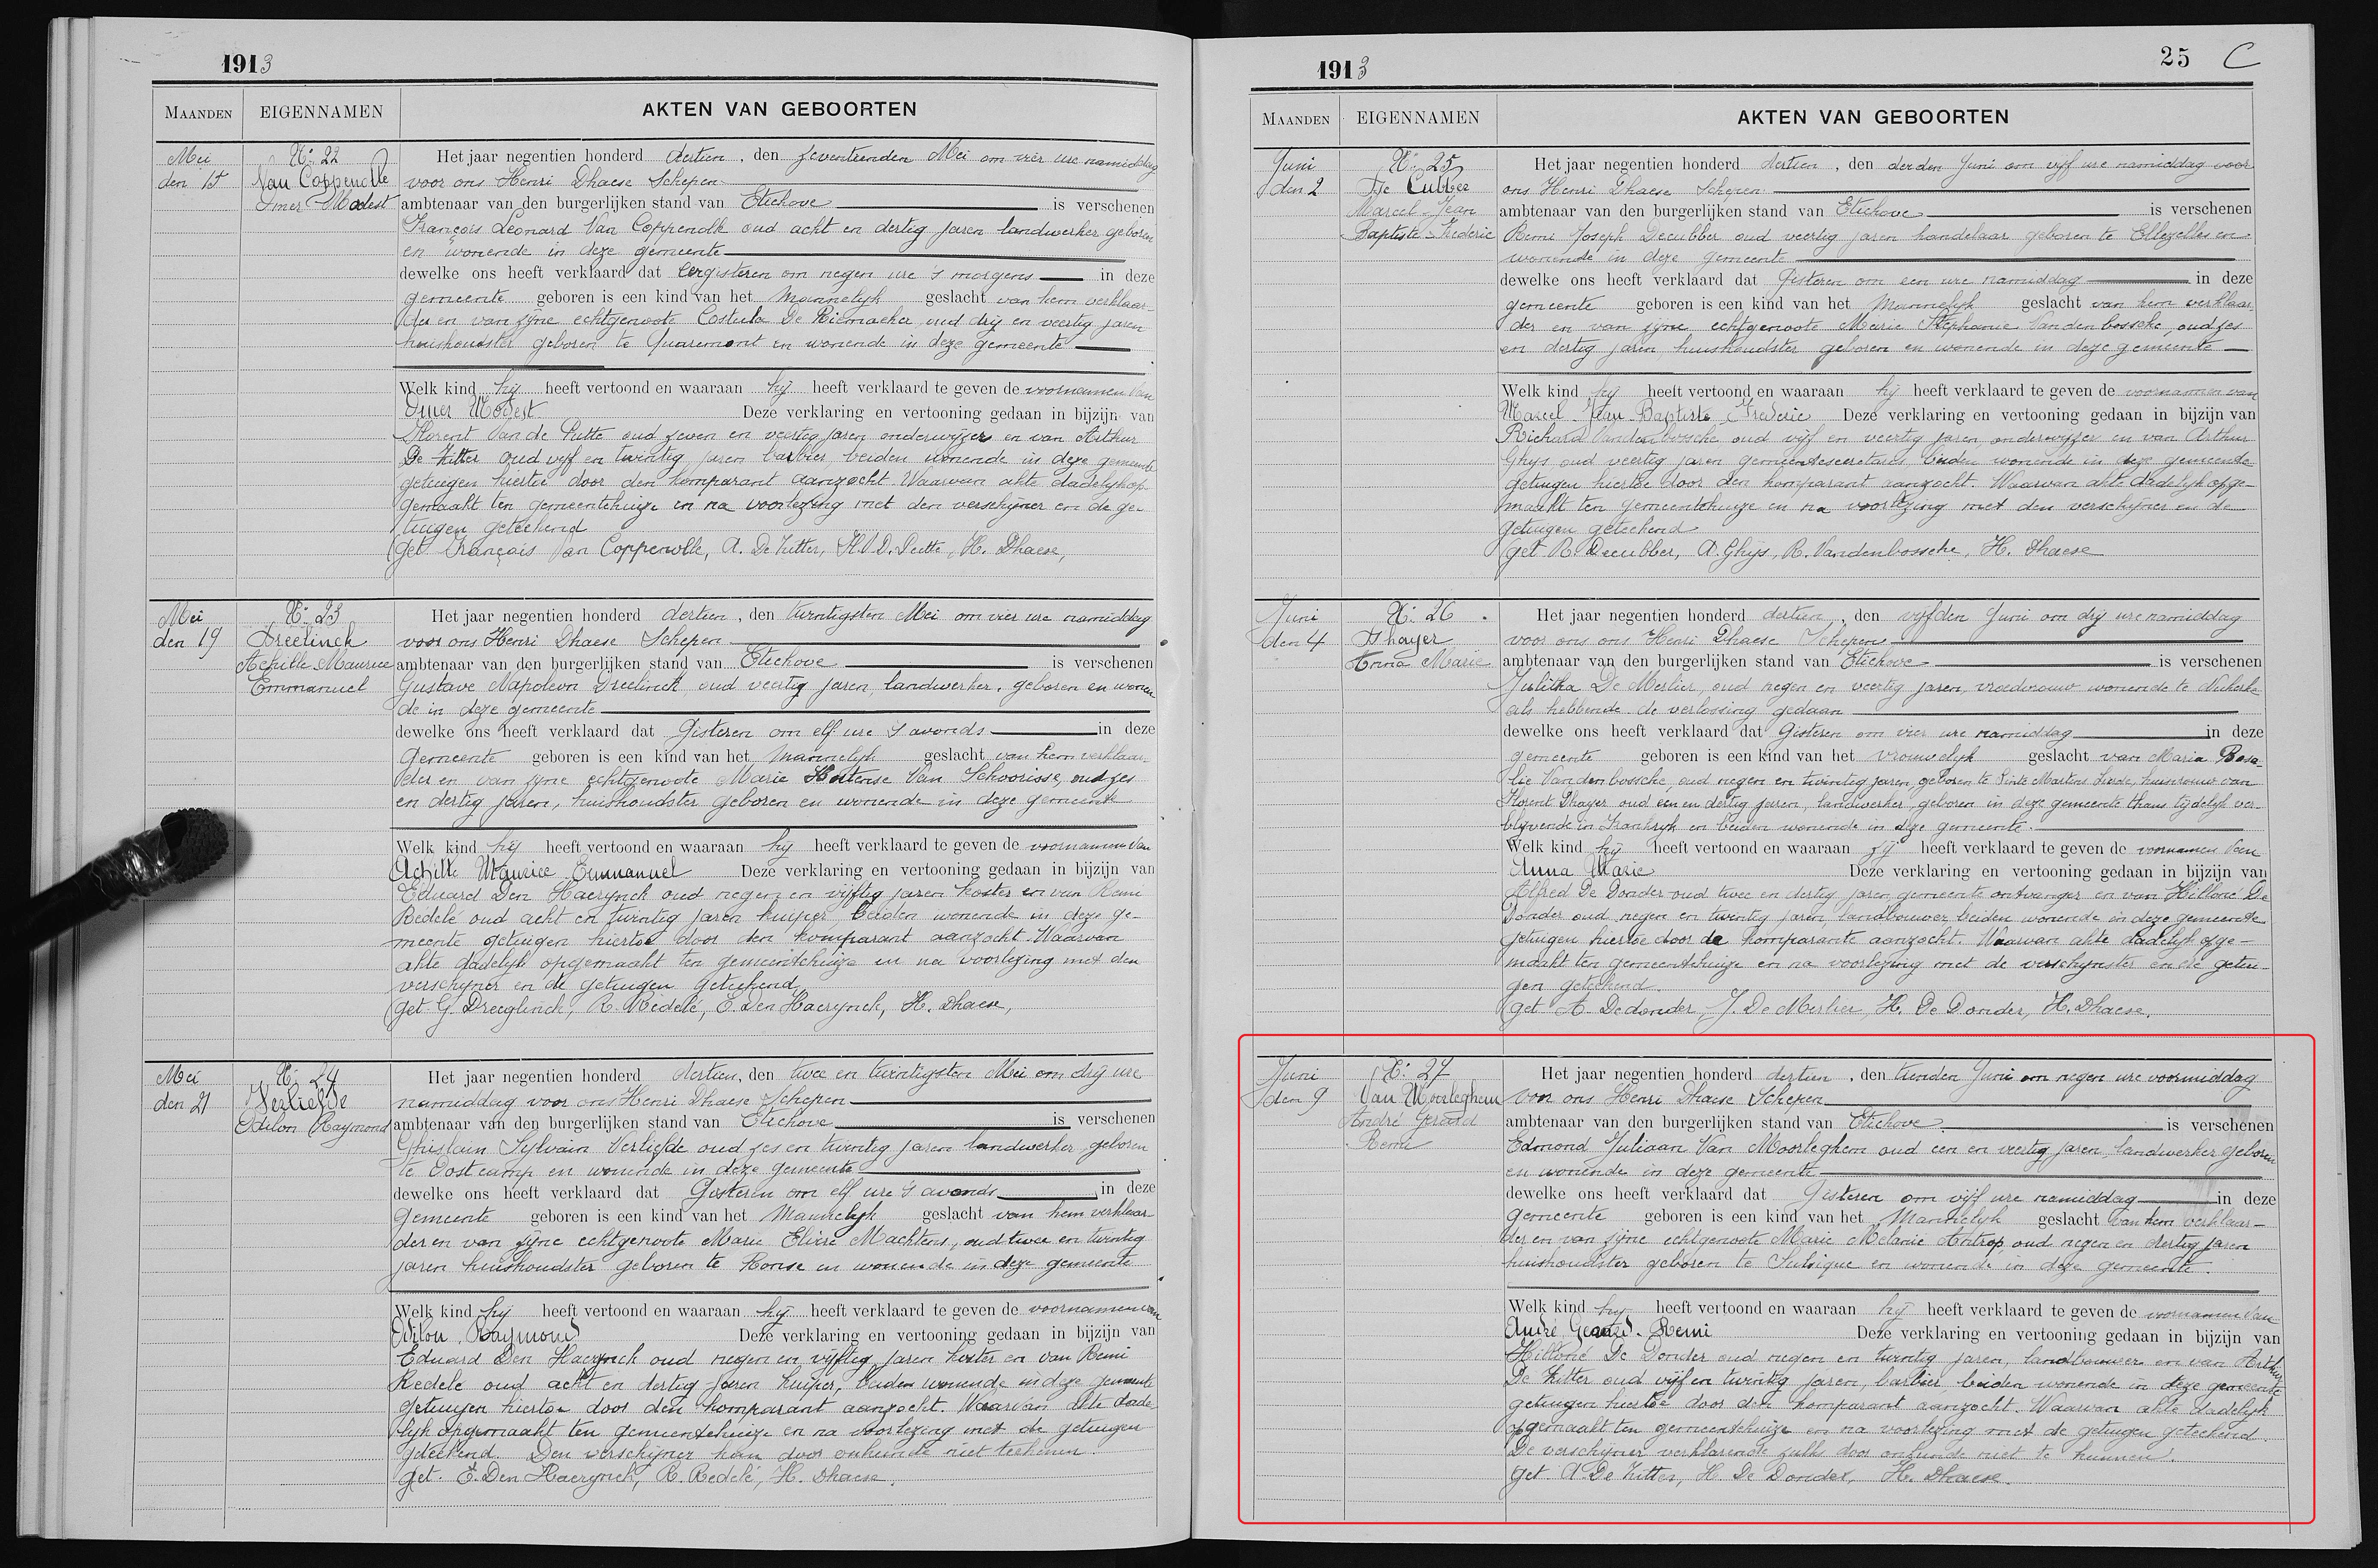 1913
MAANDEN EIGENNAMEN AKTEN VAN GEBOORTEN
Mei
den 15
N: 22
Van Coppenolle
Omer Modest
Het jaar negentien honderd dertien, den zeventienden Mei om vier ure namiddag
voor ons Henri Dhaese Schepen
ambtenaar van den burgerlijken stand van Etichove is verschenen
François Leonard Van Coppenolle oud acht en dertig jaren landwerker geboren
en wonende in deze gemeente
dewelke ons heeft verklaard dat eergisteren om negen ure 's morgens in deze
gemeente geboren is een kind van het mannelijk geslacht van hem verklaar-
der en van zijne echtgenoote De Riemaeker oud drij en veertig jaren
huishoudster geboren te Quaremont en wonende in deze gemeente
Welk kind hij heeft vertoond en waaraan hij heeft verklaard te geven de voornamen van
Omer Modest Deze verklaring en vertooning gedaan in bijzijn van
Florent Van de Putte oud zeven en veertig jaren onderwijzer en van Arthur
De Zutter oud vijf en twintig jaren barbier, beiden wonende in deze gemeente
getuigen hiertoe door den komparant aanzocht. Waarvan akte dadelijk op-
gemaakt ten gemeentehuize en na voorlezing met den verschijner en de ge-
tuigen geteekend
get François Van Coppenolle, A. De Zutter, Fl. V. D. Putte, H. Dhaese,
Mei
den 19
N: 23
Dreelinck
Achille Maurice
Emmanuel
Het jaar negentien honderd dertien, den twintigsten Mei om vier ure namiddag
voor ons Henri Dhaese Schepen
ambtenaar van den burgerlijken stand van Etichove is verschenen
Gustave Napoleon Dreelinck oud veertig jaren, landwerker, geboren en wonen
de in deze gemeente
dewelke ons heeft verklaard dat Gisteren om elf ure 's avonds in deze
gemeente geboren is een kind van het mannelijk geslacht van hem verklaar-
der en van zijne echtgenoote Marie Hortense Van Schoorisse, oud zes
en dertig jaren, huishoudster geboren en wonende in deze gemeente
Welk kind hij heeft vertoond en waaraan hij heeft verklaard te geven de voornamen van
Achille Maurice Emmanuel Deze verklaring en vertooning gedaan in bijzijn van
Eduard Den Haerynck oud negen en vijftig jaren koster en van Remi
Bedelé oud acht en twintig jaren kuiper beiden wonende in deze ge-
meente getuigen hiertoe door den komparant aanzocht. Waarvan
akte dadelijk opgemaakt ten gemeentehuize en na voorlezing met den
verschijner en de getuigen geteekend.
get G. Dreeglinck, R. Bedelé, E. Den Haerynck, H. Dhaese,
Mei
den 21
N: 24
Verliefde
Odilon Raymond
Het jaar negentien honderd dertien, den twee en twintigsten Mei om drij ure
namiddag voor ons Henri Dhaese Schepen
ambtenaar van den burgerlijken stand van Etichove is verschenen
Ghislain Sylvain Verliefde oud zes en twintig jaren landwerker geboren
te Oostcamp en wonende in deze gemeente
dewelke ons heeft verklaard dat Gisteren om elf ure 's avonds in deze
gemeente geboren is een kind van het Mannelijk geslacht van hem verklaar-
der en van zijne echtgenoote Marie Elvire Machtens, oud twee en twintig
jaren huishoudster geboren te Ronse en wonende in deze gemeente
Welk kind hij heeft vertoond en waaraan hij heeft verklaard te geven de voornamen van
Odilon Raymond Deze verklaring en vertooning gedaan in bijzijn van
Eduard Den Haerynck oud negen en vijftig jaren koster en van Remi
Bedelé oud acht en dertig jaren kuiper, beiden wonende in deze gemeente
getuigen hiertoe door den komparant aanzocht. Waarvan akte dade-
lijk opgemaakt ten gemeentehuize en na voorlezing met de getuigen
geteekend. Den verschijner kan door onkunde niet teekenen.
get. E. Den Haerynck, R. Bedelé, H. Dhaese.
1913
25 C
MAANDEN EIGENNAMEN AKTEN VAN GEBOORTEN
Juni
den 2
N: 25
De Cubber
Marcel Jean
Baptiste Frederic
Het jaar negentien honderd dertien, den derden Juni om vijf ure namiddag voor
ons Henri Dhaese Schepen
ambtenaar van den burgerlijken stand van Etichove is verschenen
Remi Joseph Decubber oud veertig jaren handelaar geboren te Ellezelles en
wonende in deze gemeente
dewelke ons heeft verklaard dat Gisteren om een ure namiddag in deze
gemeente geboren is een kind van het Mannelijk geslacht van hem verklaar
der en van zijne echtgenoote Marie Stephanie Vandenbossche, oud zes
en dertig jaren, huishoudster geboren en wonende in deze gemeente
Welk kind hij heeft vertoond en waaraan hij heeft verklaard te geven de voornamen van
Marcel Jean Baptiste Frederic Deze verklaring en vertooning gedaan in bijzijn van
Richard Vandenbossche oud vijf en veertig jaren onderwijzer en van Arthur
Ghijs oud veertig jaren gemeentesecretaris, beiden wonende in deze gemeente
getuigen hiertoe door den komparant aanzocht. Waarvan akte dadelijk opge-
maakt ten gemeentehuize en na voorlezing met den verschijner en de
getuigen geteekend
get R. Decubber, A. Ghijs, R. Vandenbossche, H. Dhaese
Juni
den 4
N: 26
Dhayer
Anna Marie
Het jaar negentien honderd dertien, den vijfden Juni om drij ure namiddag
voor ons ons Henri Dhaese Schepen
ambtenaar van den burgerlijken stand van Etichove is verschenen
Julitha De Merlier, oud negen en veertig jaren, vroedvrouw wonende te Nukerke
als hebbende de verlossing gedaan
dewelke ons heeft verklaard dat Gisteren om vier ure namiddag in deze
gemeente geboren is een kind van het vrouwelijk geslacht van Maria Rosa-
lie Vandenbossche, oud negen en twintig jaren, geboren te Sinte Martens Lierde, huisvrouw van
Florent Dhayer oud een en dertig jaren, landwerker, geboren in deze gemeente thans tijdelijk ver-
blijvende in Frankrijk en beiden wonende in deze gemeente.
Welk kind hij heeft vertoond en waaraan zij heeft verklaard te geven de voornamen van
Anna Marie Deze verklaring en vertooning gedaan in bijzijn van
Alfred De Donder oud twee en dertig jaren, gemeente ontvanger en van Hilloné De
Donder oud negen en twintig jaren, landbouwer beiden wonende in deze gemeente
getuigen hiertoe door de komparante aanzocht. Waarvan akte dadelijk opge-
maakt ten gemeentehuize en na voorlezing met de verschijnster en de getui-
gen geteekend.
get A. Dedonder, J. De Merlier, H. De Donder, H. Dhaese.
Juni
den 9
N: 27
Van Moorleghem
André Gerard
Remi
Het jaar negentien honderd dertien, den tienden Juni om negen ure voormiddag
voor ons Henri Dhaese Schepen
ambtenaar van den burgerlijken stand van Etichove is verschenen
Edmond Juliaan Van Moorleghem oud een en veertig jaren, landwerker geboren
en wonende in deze gemeente
dewelke ons heeft verklaard dat Gisteren om vijf ure namiddag in deze
gemeente geboren is een kind van het Mannelijk geslacht van hem verklaar-
der en van zijne echtgenoote Marie Melanie Antrop oud negen en dertig jaren
huishoudster geboren te Sulsique en wonende in deze gemeente.
Welk kind hij heeft vertoond en waaraan hij heeft verklaard te geven de voornamen van
André Gerard Remi Deze verklaring en vertooning gedaan in bijzijn van
Hilloné De Donder oud negen en twintig jaren, landbouwer en van Arthur
De Zutter oud vijf en twintig jaren, barbier, beiden wonende in deze gemeente
getuigen hiertoe door den komparant aanzocht. Waarvan akte dadelijk
opgemaakt ten gemeentehuize en na voorlezing met de getuigen geteekend.
De verschijner verklarende zulks door onkunde niet te kunnen.
get. A. De Zutter, H. De Donder, H. Dhaese.